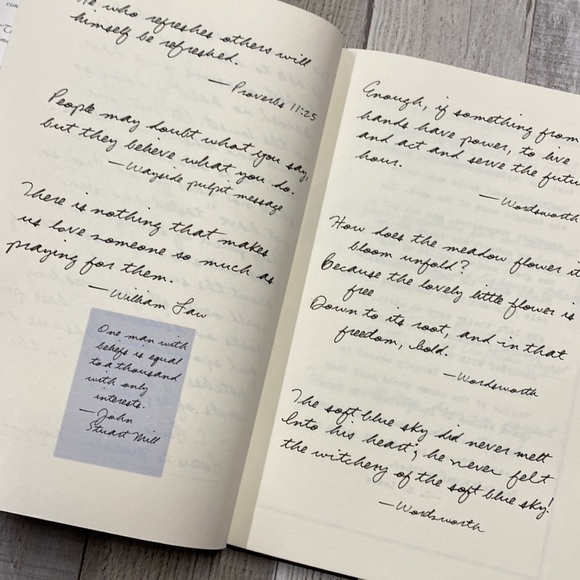 He who refreshes others will
himself be refreshed.
—Proverbs 11:25
People may doubt what you say,
but they believe what you do.
—Wayside pulpit message
There is nothing that makes
us love someone so much as
praying for them.
—William Law
One man with
beliefs is equal
to a thousand
with only
interests.
—John
Stuart Mill
Enough, if something from
hands have power, to live
and act and serve the
hour.
—Wordsworth
How does the meadow flower
bloom unfold?
Because the lovely little flower is
free
Down to its root, and in that
freedom, bold.
—Wordsworth
The soft blue sky did never melt
Into his heart; he never felt
the witchery of the soft blue sky!
—Wordsworth